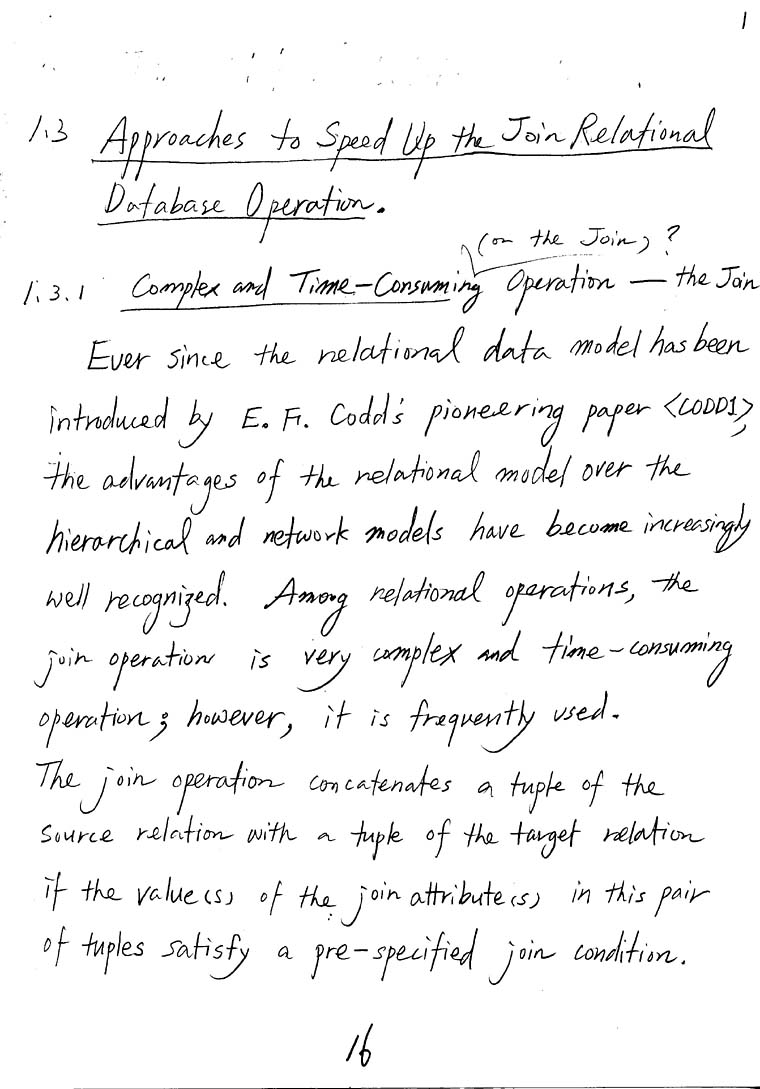 1
1.3 Approaches to Speed Up the Join Relational
Database Operation.
(on the Join) ?
1.3.1 Complex and Time-Consuming Operation — the Join
Ever since the relational data model has been
introduced by E. F. Codd's pioneering paper <CODD1>,
the advantages of the relational model over the
hierarchical and network models have become increasingly
well recognized. Among relational operations, the
join operation is very complex and time-consuming
operation; however, it is frequently used.
The join operation concatenates a tuple of the
source relation with a tuple of the target relation
if the value(s) of the join attribute(s) in this pair
of tuples satisfy a pre-specified join condition.
16